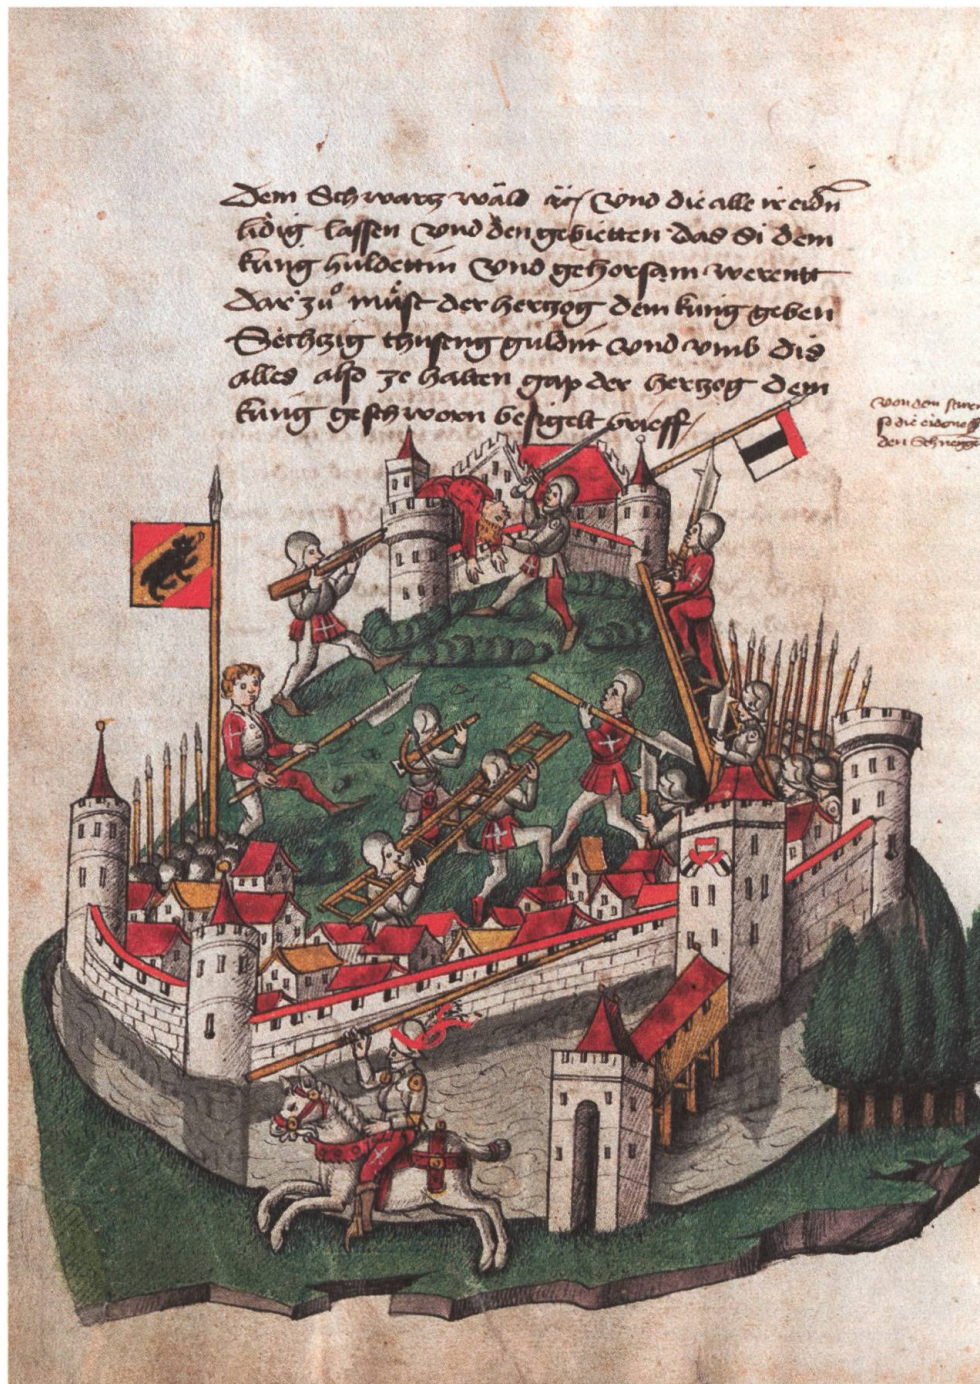 Dem Schwartz wäld ꝛc / Vnd die alle ir eidn
lidig lassen Vnd den gebietten das Si dem
kúng huldettin Vnd gehorsam werentt
Dar zuͦ muͤst der hertzog dem kúng geben
Sechtzig thuseng guldin Vnd vmb dis
alles also ze halten gap der hertzog dem
kúng geschworn besigelt brieff /
Von dem sturm
so die eidgnoss
den